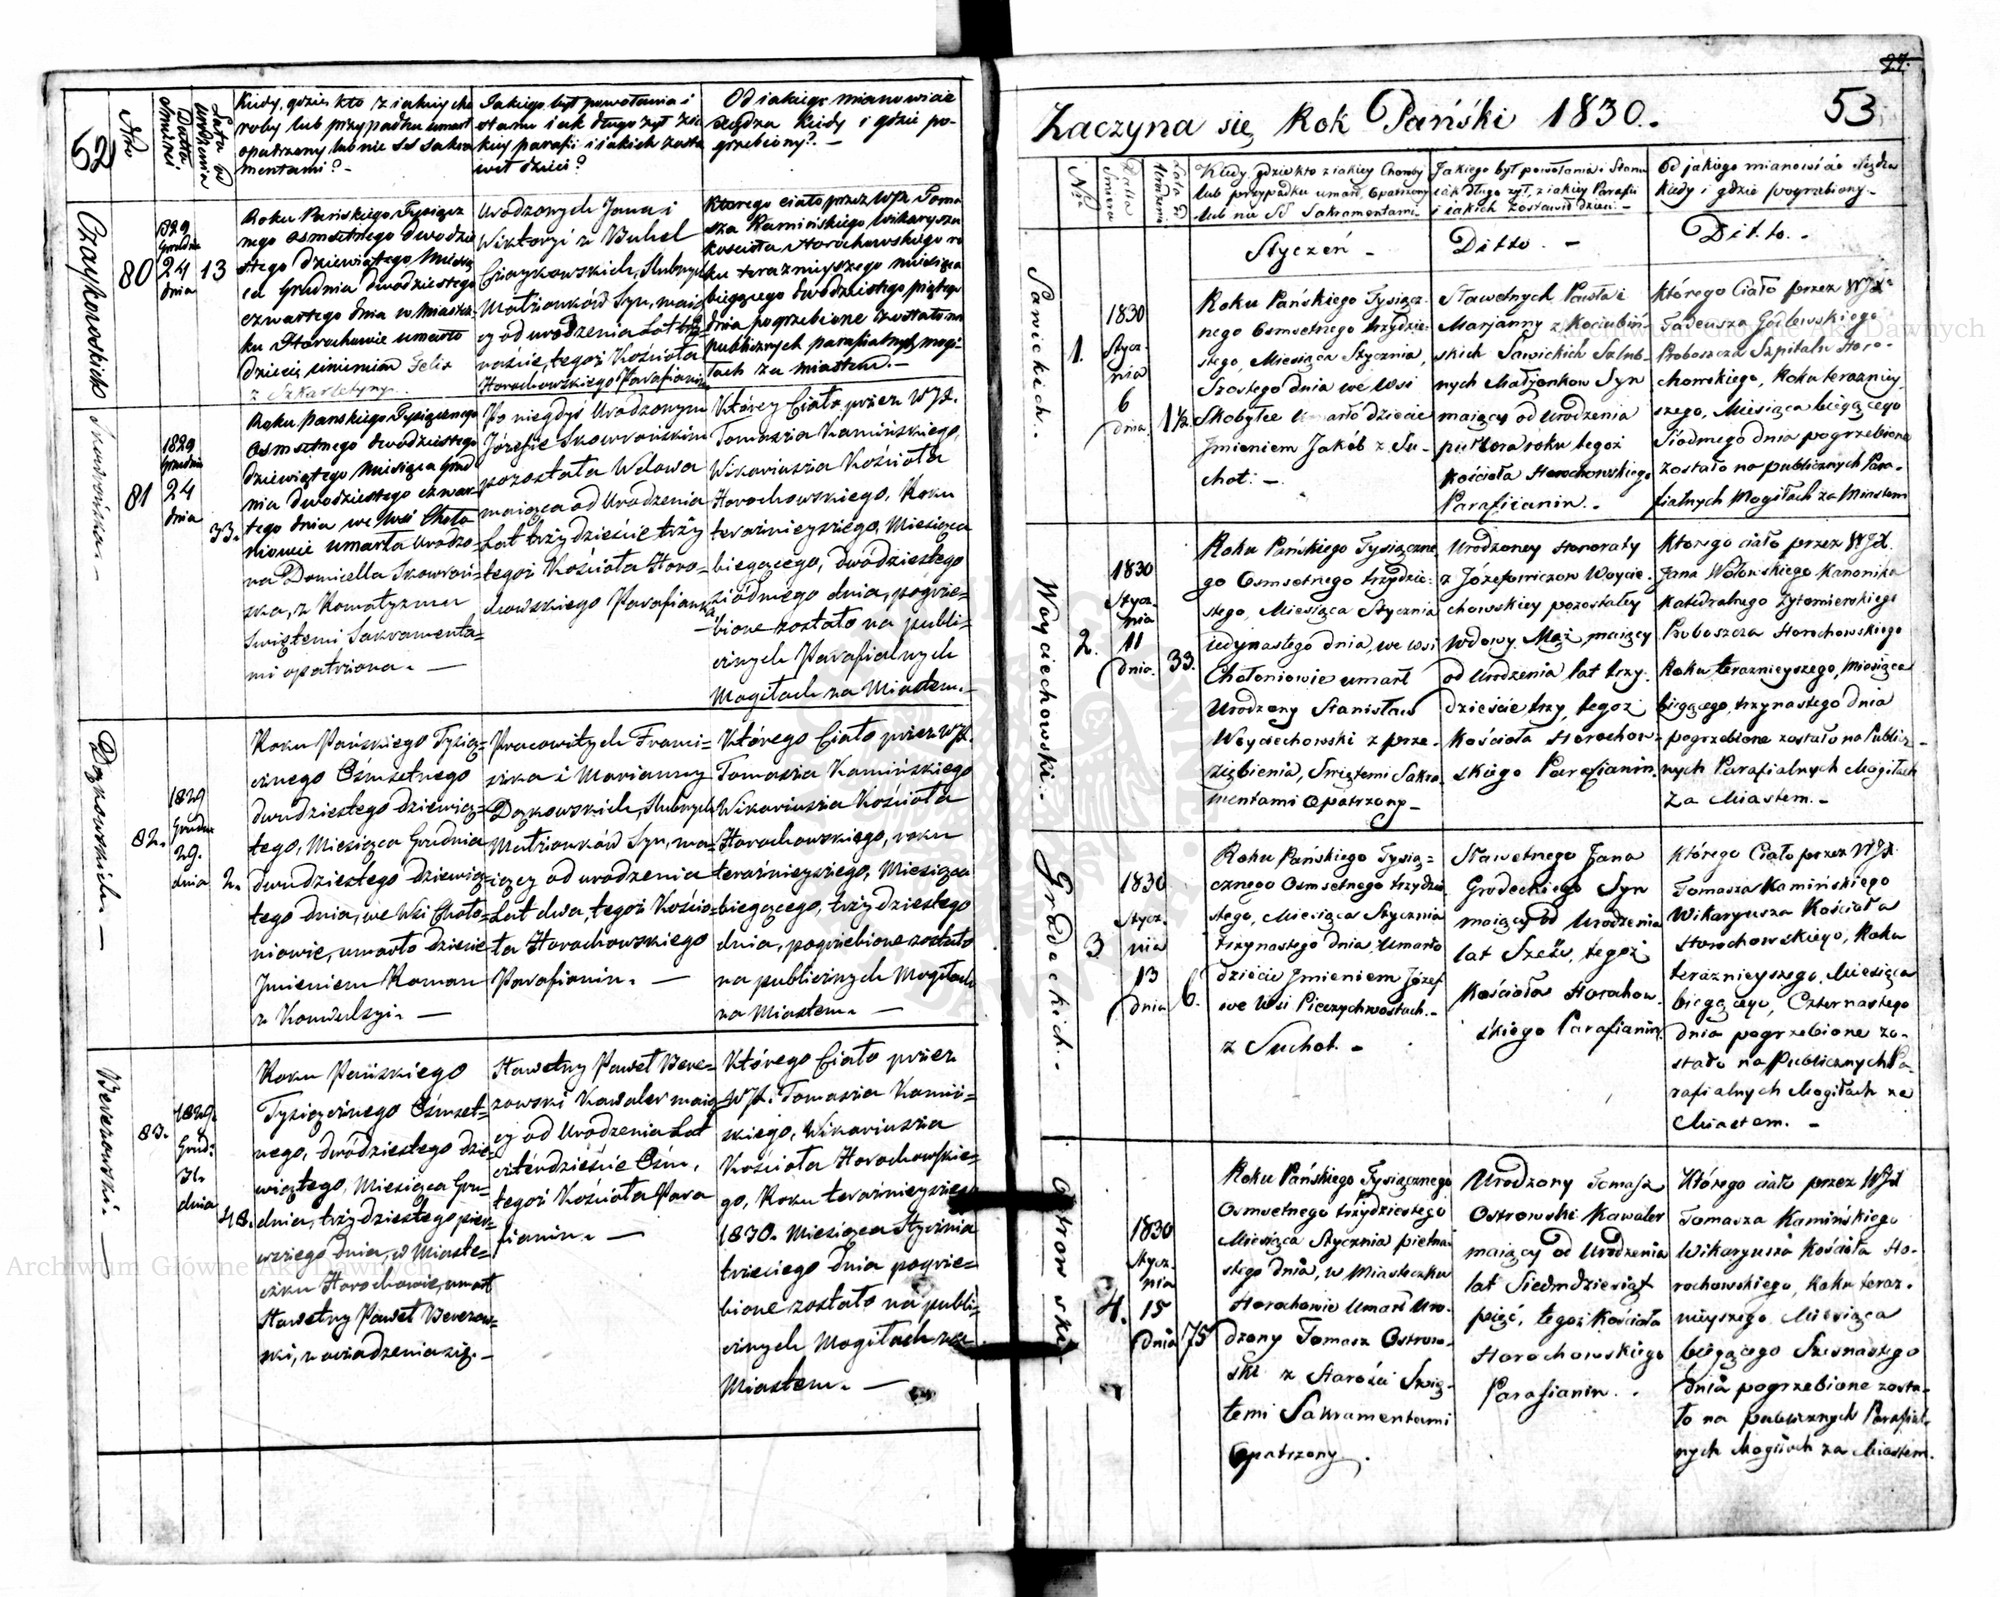 52
Nro
Data Śmierci
Lata od Urodzenia
Kiedy, gdzie, kto z iakiey cho
roby lub przypadku umarł
opatrzony lub nie SS Sakra
mentami? -
Jakiego był powołania i
stanu iak długo żył z ia
kiey parafii i iakich zosta
wił dzieci?
Od iakiego mianowicie
Xiędza kiedy i gdzie po-
grzebiony? -
Czaykowskich
80
1829
Grudnia
24
dnia
13
Roku Pańskiego Tysiącz
nego osmsetnego dwudzie
stego dziewiątego Miesią
ca Grudnia dwudziestego
czwartego dnia w Miastecz
ku Horochowie umarło
dziecię imieniem Felix
z Szkarletyny.
Urodzonych Jana i
Wiktoryi z
Czaykowskich, Slubnych
Małżonków Syn, maią
cy od urodzenia Lat trzy
naście, tegoż Kościoła
Horochowskiego Parafianin
Którego ciało przez WJX Toma
sza Kamińskiego Wikaryusza
kościoła Horochowskiego ro
ku teraznieyszego miesiąca
bieżącego dwódziestego piątego
dnia pogrzebione zostało na
publicznych parafialnych mogi-
łach za miastem. -
Skowrońska. -
81
1829
Grudnia
24
dnia
33.
Roku Panskiego Tysiącznego
osmsetnego dwódziestego
dziewiątego Miesiąca Grud
nia dwudziestego czwar-
tego dnia we Wsi Choło
niowie umarła Urodzo-
na Domicella Skowroń-
ska, z Romatyzmu
Swiętemi Sakramenta-
mi opatrzona. -
Po niegdyś Urodzonym
Józefie Skowrońskim
pozostała Wdowa
maiąca od Urodzenia
Lat trzydzieście trzy
tegoż Kościoła Horo-
chowskiego Parafianka
Którey Ciało przez WJX.
Tomasza Kamińskiego,
Wikariusza Kościoła
Horochowskiego, Roku
teraźnieyszego, Miesiąca
bieżącego, dwódziestego
siódmego dnia, pogrze-
bione zostało na publi-
cznych Parafialnych
Mogiłach za Miastem. -
82.
1829
Grudnia
29.
dnia
2.
Roku Pańskiego Tysią-
cznego Ośmsetnego
dwudziestego dziewią-
tego, Miesiąca Grudnia
dwudziestego dziewią-
tego dnia, we Wsi Choło-
niowie, umarło dziecie
Imieniem Roman
z Konwulsyi. -
Pracowitych Franci-
szka i Marianny
Slubnych
Małżonków Syn, ma-
iący od urodzenia
Lat dwa, tegoż Kościo-
ła Horochowskiego
Parafianin. -
Którego Ciało przez WJX.
Tomasza Kamińskiego
Wikariusza Kościoła
Horochowskiego, roku
teraźnieyszego, Miesiąca
bieżącego, trzydziestego
dnia, pogrzebione zostało
na publicznych Mogiłach
za Miastem. -
Berezowski. -
83.
1829.
Grud:
31.
dnia
48.
Roku Pańskiego
Tysiącznego Ośmset-
nego, dwódziestego dzie-
wiątego, Miesiąca Gru-
dnia, trzydziestego pier-
wszego dnia, w Miaste-
czku Horochowie, umarł
Sławetny Paweł Berezow-
ski,
Sławetny Paweł Bere-
zowski Kawaler maią-
cy od Urodzenia Lat
czterdzieście Ośm,
tegoż Kościoła Para
fianin. -
Którego Ciało przez
WJX. Tomasza Kamiń-
skiego, Wikariusza
Kościoła Horochowskie-
go, Roku teraźnieyszego
1830. Miesiąca Stycznia
trzeciego dnia pogrze-
bione zostało na publi-
cznych Mogiłach za
Miastem. -
27.
53
Zaczyna się Rok Pański 1830.
Nro
Datta Śmierci
Lata od Urodzenia
Kiedy, gdzie kto z iakiey Choroby
lub przypadku umarł, opatrzony
lub nie SS Sakramentami -
Jakiego był powołania i Stanu
iak długo żył, z iakiey Parafii
i iakich zostawił dzieci: -
Od jakiego mianowicie Xiędza
kiedy i gdzie pogrzebiony -
Styczeń -
Ditto. -
Ditto. -
Sawickich.
1.
1830
Stycz-
nia
6
dnia.
1½
Roku Pańskiego Tysiącz-
nego Osmsetnego trzydzie-
stego, Miesiąca Stycznia,
Szostego dnia we Wsi
Skobyłce umarło dziecie
Jmieniem Jakób z Su-
chot. -
Sławetnych Pawła i
Marjanny z Kociubiń-
skich Sawickich Szlub-
nych Małżonkow Syn
maiący od Urodzenia
pułtora roku tegoż
Kościoła Horochowskiego
Parafiianin.
którego Ciało przez WJX
Tadeusza Godlewskiego
Proboszcza Szpitalu Horo-
chowskiego, Roku terazniey-
szego, Miesiąca bieżącego
Siódmego dnia pogrzebione
zostało na publicznych Para-
fialnych Mogiłach za Miastem
Woyciechowski.
2.
1830
Stycz-
nia
11
dnia.
33.
Roku Pańskiego Tysiączne
go Osmsetnego trzydzie-
stego, Miesiąca Stycznia
iedynastego dnia, we wsi
Chołoniowie umarł
Urodzony Stanisław
Woyciechowski z prze-
ziębienia, Swiętemi Sakra-
mentami Opatrzony -
Urodzoney Honoraty
z Józefowiczow Woycie-
chowskiey pozostałey
wdowy Mąż, maiący
od Urodzenia lat trzy-
dzieście trzy, tegoż
Kościoła Horochow-
skiego Parafianin.
Ktorego ciało przez WJX.
Jana Wołowskiego Kanonika
Katedralnego Zytomierskiego
Proboszcza Horochowskiego
Roku teraznieyszego, Miesiąca
bieżącego, trzynastego dnia
pogrzebione zostało na Publicz-
nych Parafialnych Mogiłach
Za Miastem. -
Grodeckich.
3
1830
Stycz-
nia
13
dnia
6.
Roku Pańskiego Tysią-
cznego Osmsetnego trzydzie-
stego, Miesiąca Stycznia
trzynastego dnia, Umarło
dziecie Jmieniem Józef
we Wsi Pieczychwostach. -
z Suchot. -
Sławetnego Jana
Grodeckiego Syn
maiący od Urodzenia
lat Sześć, tegoż
Kościoła Horochow-
skiego Parafianin.
którego Ciało przez WJX.
Tomasza Kamińskiego
Wikaryusza Kościoła
Horochowskiego, Roku
teraznieyszego, Miesiąca
bieżącego, Czternastego
dnia pogrzebione zo-
stało na Publicznych Pa-
rafialnych Mogiłach za
Miastem. -
Ostrowski
4.
1830
Stycz-
nia
15
dnia
75
Roku Pańskiego Tysiącznego
Osmsetnego trzydziestego
Miesiąca Stycznia pietna-
stego dnia, w Miasteczku
Horochowie Umarł Uro-
dzony Tomasz Ostrow-
ski z Starości Swię-
temi Sakramentami
Opatrzony.
Urodzony Tomasz
Ostrowski Kawaler
maiący od Urodzenia
lat Siedmdziesiąt
pięć, tegoż Kościoła
Horochowskiego
Parafianin.
Którego ciało przez WJX
Tomasza Kamińskiego
Wikaryusza Kościoła Ho-
rochowskiego, Roku teraz-
nieyszego Miesiąca
bieżącego Szesnastego
dnia pogrzebione zosta-
ło na publicznych Parafial-
nych Mogiłach za Miastem.
Archiwum Główne Akt Dawnych